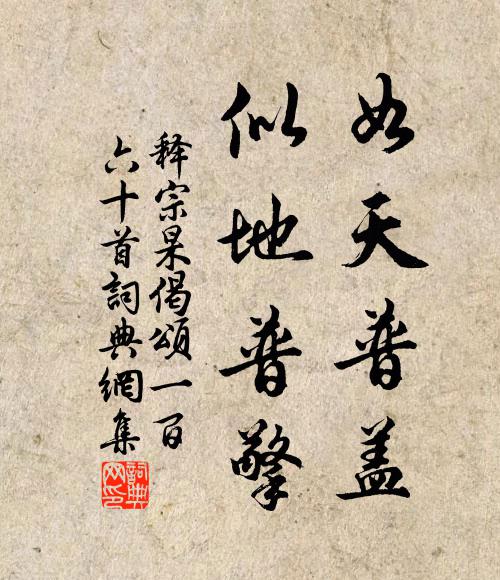 如天普盖
似地普擎
释宗杲偈頌一百
六十首詞典網集
詞典
网印